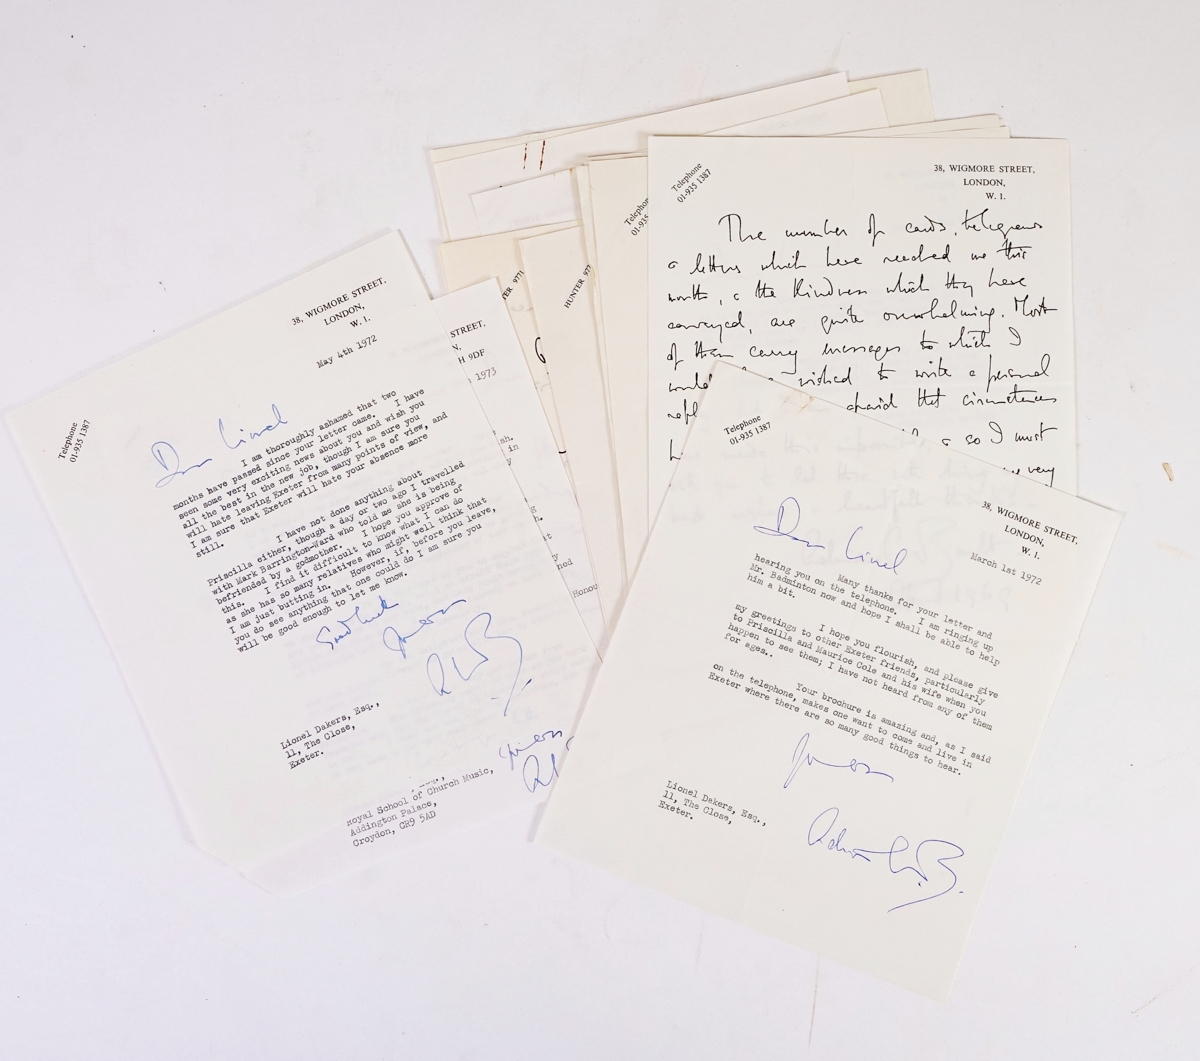 38, WIGMORE STREET,
LONDON,
W. 1.
Telephone
01-935 1387
May 4th 1972
Dear Lionel
I am thoroughly ashamed that two
months have passed since your letter came. I have
seen some very exciting news about you and wish you
all the best in the new job, though I am sure you
will hate leaving Exeter from many points of view, and
I am sure that Exeter will hate your absence more
still.
I have not done anything about
Priscilla either, though a day or two ago I travelled
with Mark Barrington-Ward who told me she is being
befriended by a godmother. I hope you approve of
this. I find it difficult to know what I can do
as she has so many relatives who might well think that
I am just butting in. However, if, before you leave,
you do see anything that one could do I am sure you
will be good enough to let me know.
Good luck
Yours
Lionel Dakers, Esq.,
11, The Close,
Exeter.
Yours
Royal School of Church Music,
Addington Palace,
Croydon, CR9 5AD
STREET,
N.
H 9DF
1973
HUNTER 977
Telephone
01-935
38, WIGMORE STREET,
LONDON,
W. 1.
Telephone
01-935 1387
The number of cards, telegrams
& letters which have reached me this
month, & the kindness which they have
conveyed, are quite overwhelming. Most
of them carry messages to which I
would wished to write a personal
afraid that circumstances
& so I must
very
Telephone
01-935 1387
38, WIGMORE STREET,
LONDON,
W. 1.
March 1st 1972
Dear Lionel
Many thanks for your letter and
hearing you on the telephone. I am ringing up
Mr. Badminton now and hope I shall be able to help
him a bit.
I hope you flourish, and please give
my greetings to other Exeter friends, particularly
to Priscilla and Maurice Cole and his wife when you
happen to see them; I have not heard from any of them
for ages..
Your brochure is amazing and, as I said
on the telephone, makes one want to come and live in
Exeter where there are so many good things to hear.
Yours
Lionel Dakers, Esq.,
11, The Close,
Exeter.